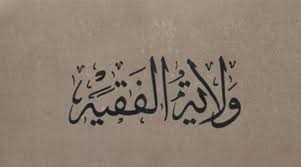 ولاية الفقيه